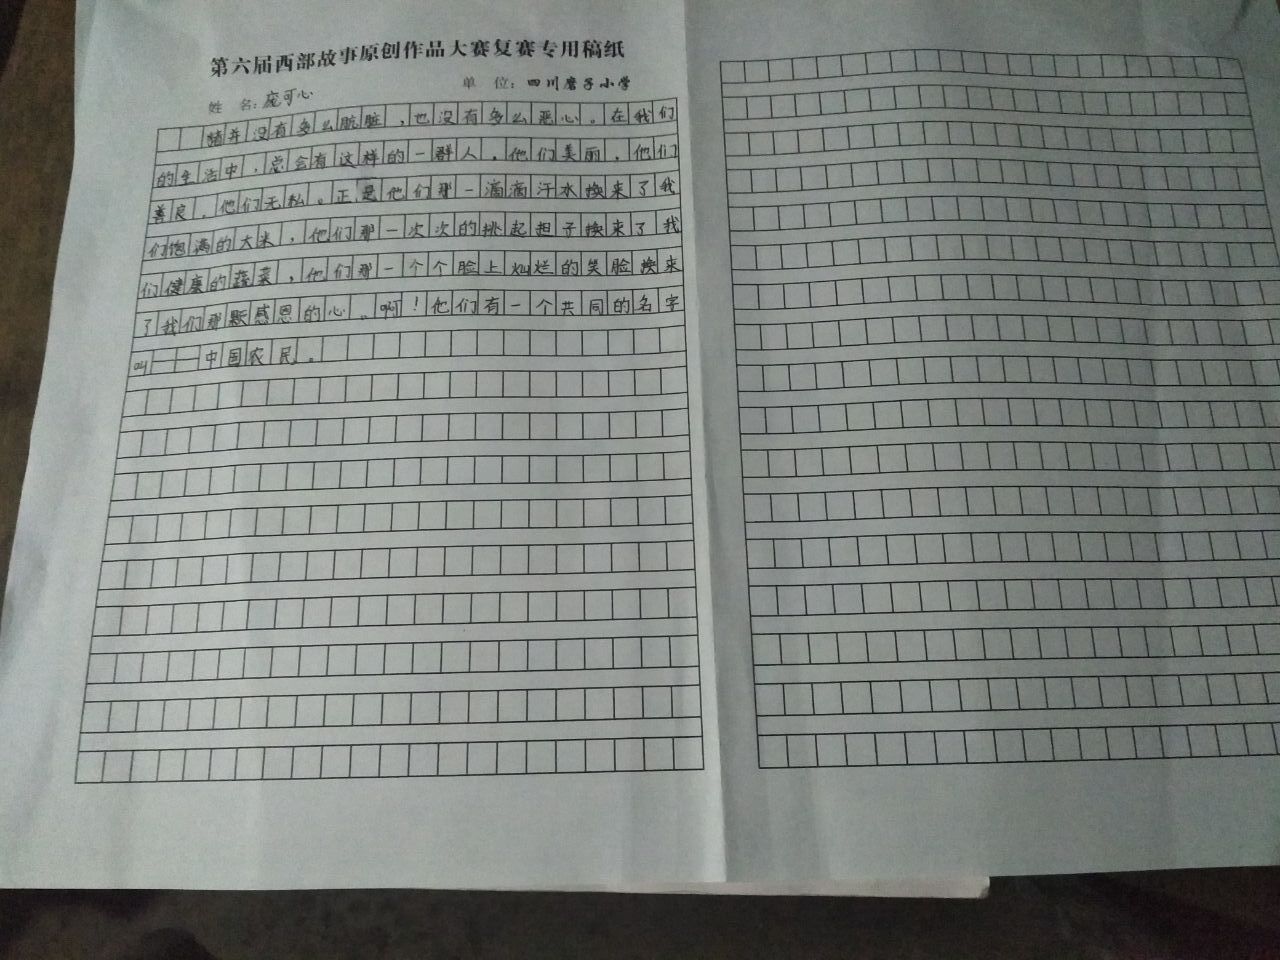 第六届西部故事原创作品大赛复赛专用稿纸
姓 名：庞可心 单 位：四川磨子小学
猪并没有多么肮脏，也没有多么恶心。在我们
的生活中，总会有这样的一群人，他们美丽，他们
善良，他们无私。正是他们那一滴滴汗水换来了我
们饱满的大米，他们那一次次的挑起担子换来了我
们健康的蔬菜，他们那一个个脸上灿烂的笑脸换来
了我们那颗感恩的心。啊！他们有一个共同的名字
叫——中国农民。